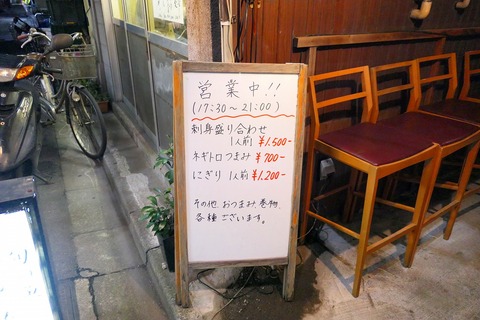 営業中!!
(17:30～21:00)
刺身盛り合わせ
1人前 ¥1.500-
ネギトロつまみ ¥700-
にぎり 1人前 ¥1.200-
その他、おつまみ、巻物、
各種ございます。